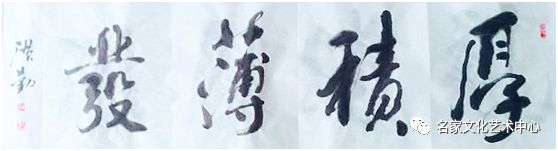 厚積薄發
洪勤
名家文化艺术中心